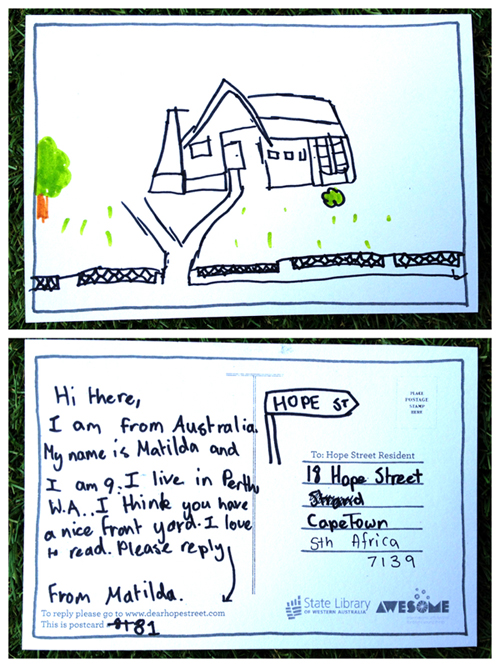 Hi there,
I am from Australia.
My name is Matilda and
I am 9. I live in Perth
W.A.. I think you have
a nice front yard. I love
to read. Please reply
From Matilda.
To reply please go to www.dearhopestreet.com
This is postcard 81
HOPE ST
PLACE
POSTAGE
STAMP
HERE
To: Hope Street Resident
18 Hope Street
CapeTown
Sth Africa
7139
State Library
OF WESTERN AUSTRALIA
AWESOME